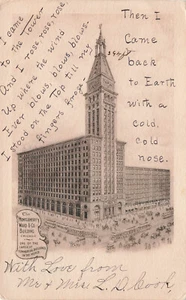 I came
to the Tower
And I rose, rose, rose,
Up where the wind
Ever blows, blows, blows.
I stood on the top till my
fingers froze
Then I
Came
back
to Earth
with a
cold,
cold
nose.
The
Montgomery
Ward & Co.
Building
With Love from
Mr & Mrs L. D. Cook